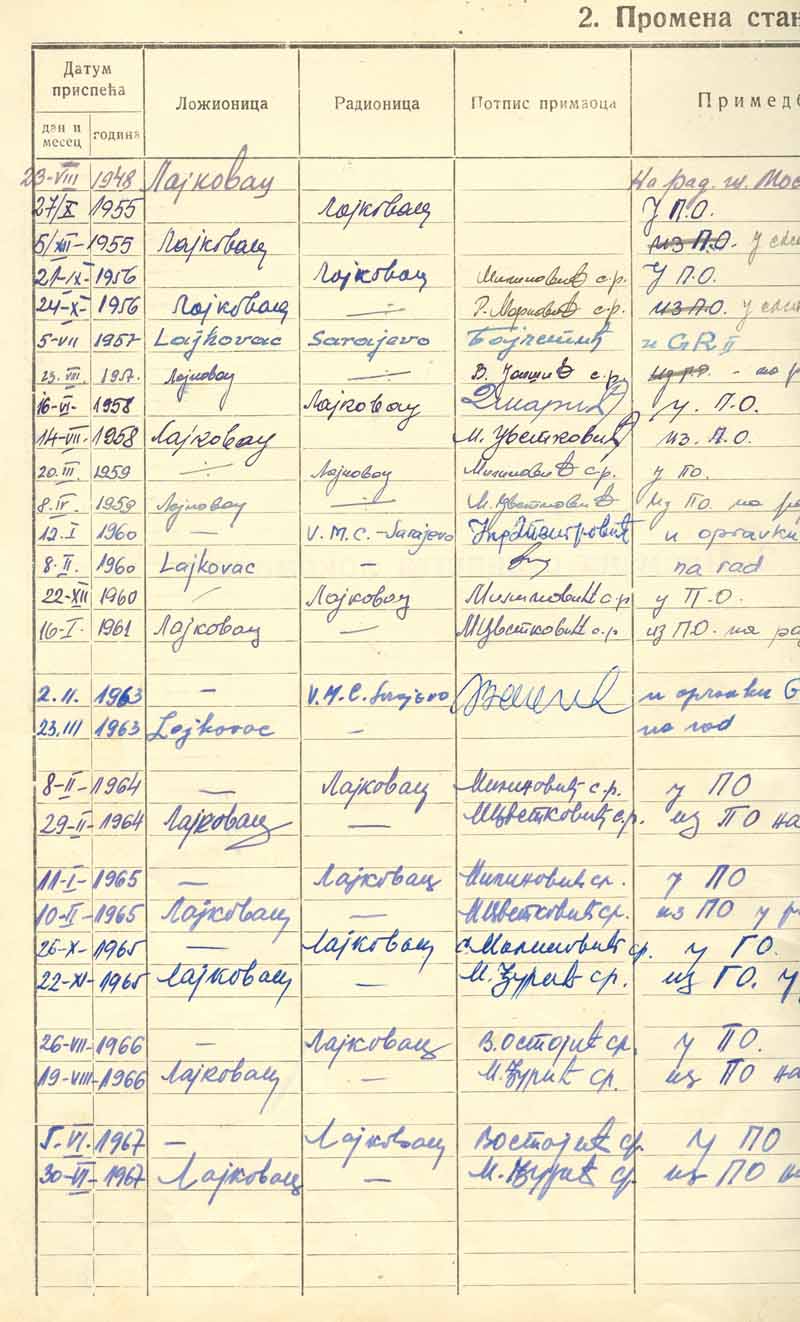 2. Промена стан
Датум приспећа Ложионица Радионица Потпис примаоца Примедб
дан и месец година
23-VIII 1948 Лајковац На рад. ж. Мос
27/X 1955 Лајковац У П.О.
5/XII- 1955 Лајковац из П.О. у
21-IX- 1956 Лајковац Милиновић с.р. У П.О.
24-X- 1956 Лајковац -:- Р. Марковић с.р. из П.О. у
5-VII 1957 Lajkovac Sarajevo и GR II
23. VIII. 1957. Лајковац -:- с.р.
16-VI- 1958 Лајковац у. П.О.
14-VII- 1958 Лајковац М. Цветковић из. П.О.
20. III. 1959 -:- Лајковац Милиновић с.р. у ПО.
8. IV. 1959 Лајковац -:- М. Цветковић из ПО. на р
12. I 1960 — V.M.C.-Sarajevo и оправки
8. II. 1960 Lajkovac — na rad
22-XII 1960 Лајковац Милиновић с.р у П.О.
16-I- 1961 Лајковац — МЦветковић с.р. из П.О. на ра
2. II. 1963 — V.M.C. Sarajevo и оправки G
23. III 1963 Lajkovac — na rad
8-II- 1964 — Лајковац Милиновић с.р. у ПО
29-II- 1964 Лајковац — МЦветковић с.р. из ПО на
11-I- 1965 — Лајковац Милиновић ср. у ПО
10-II- 1965 Лајковац — МЦветковић ср. из ПО у р
26-X- 1965 — Лајковац Милиновић ср. у ГО.
22-XI- 1965 Лајковац — М. Ђурић ср. из ГО. у
26-VII- 1966 — Лајковац В.Остојић ср. у ПО.
19-VIII- 1966 Лајковац — М. Ђурић ср. из ПО на
5. VI. 1967 — Лајковац ВОстојић ср. у ПО
30-VI- 1967 Лајковац — М. Ђурић ср. из ПО на